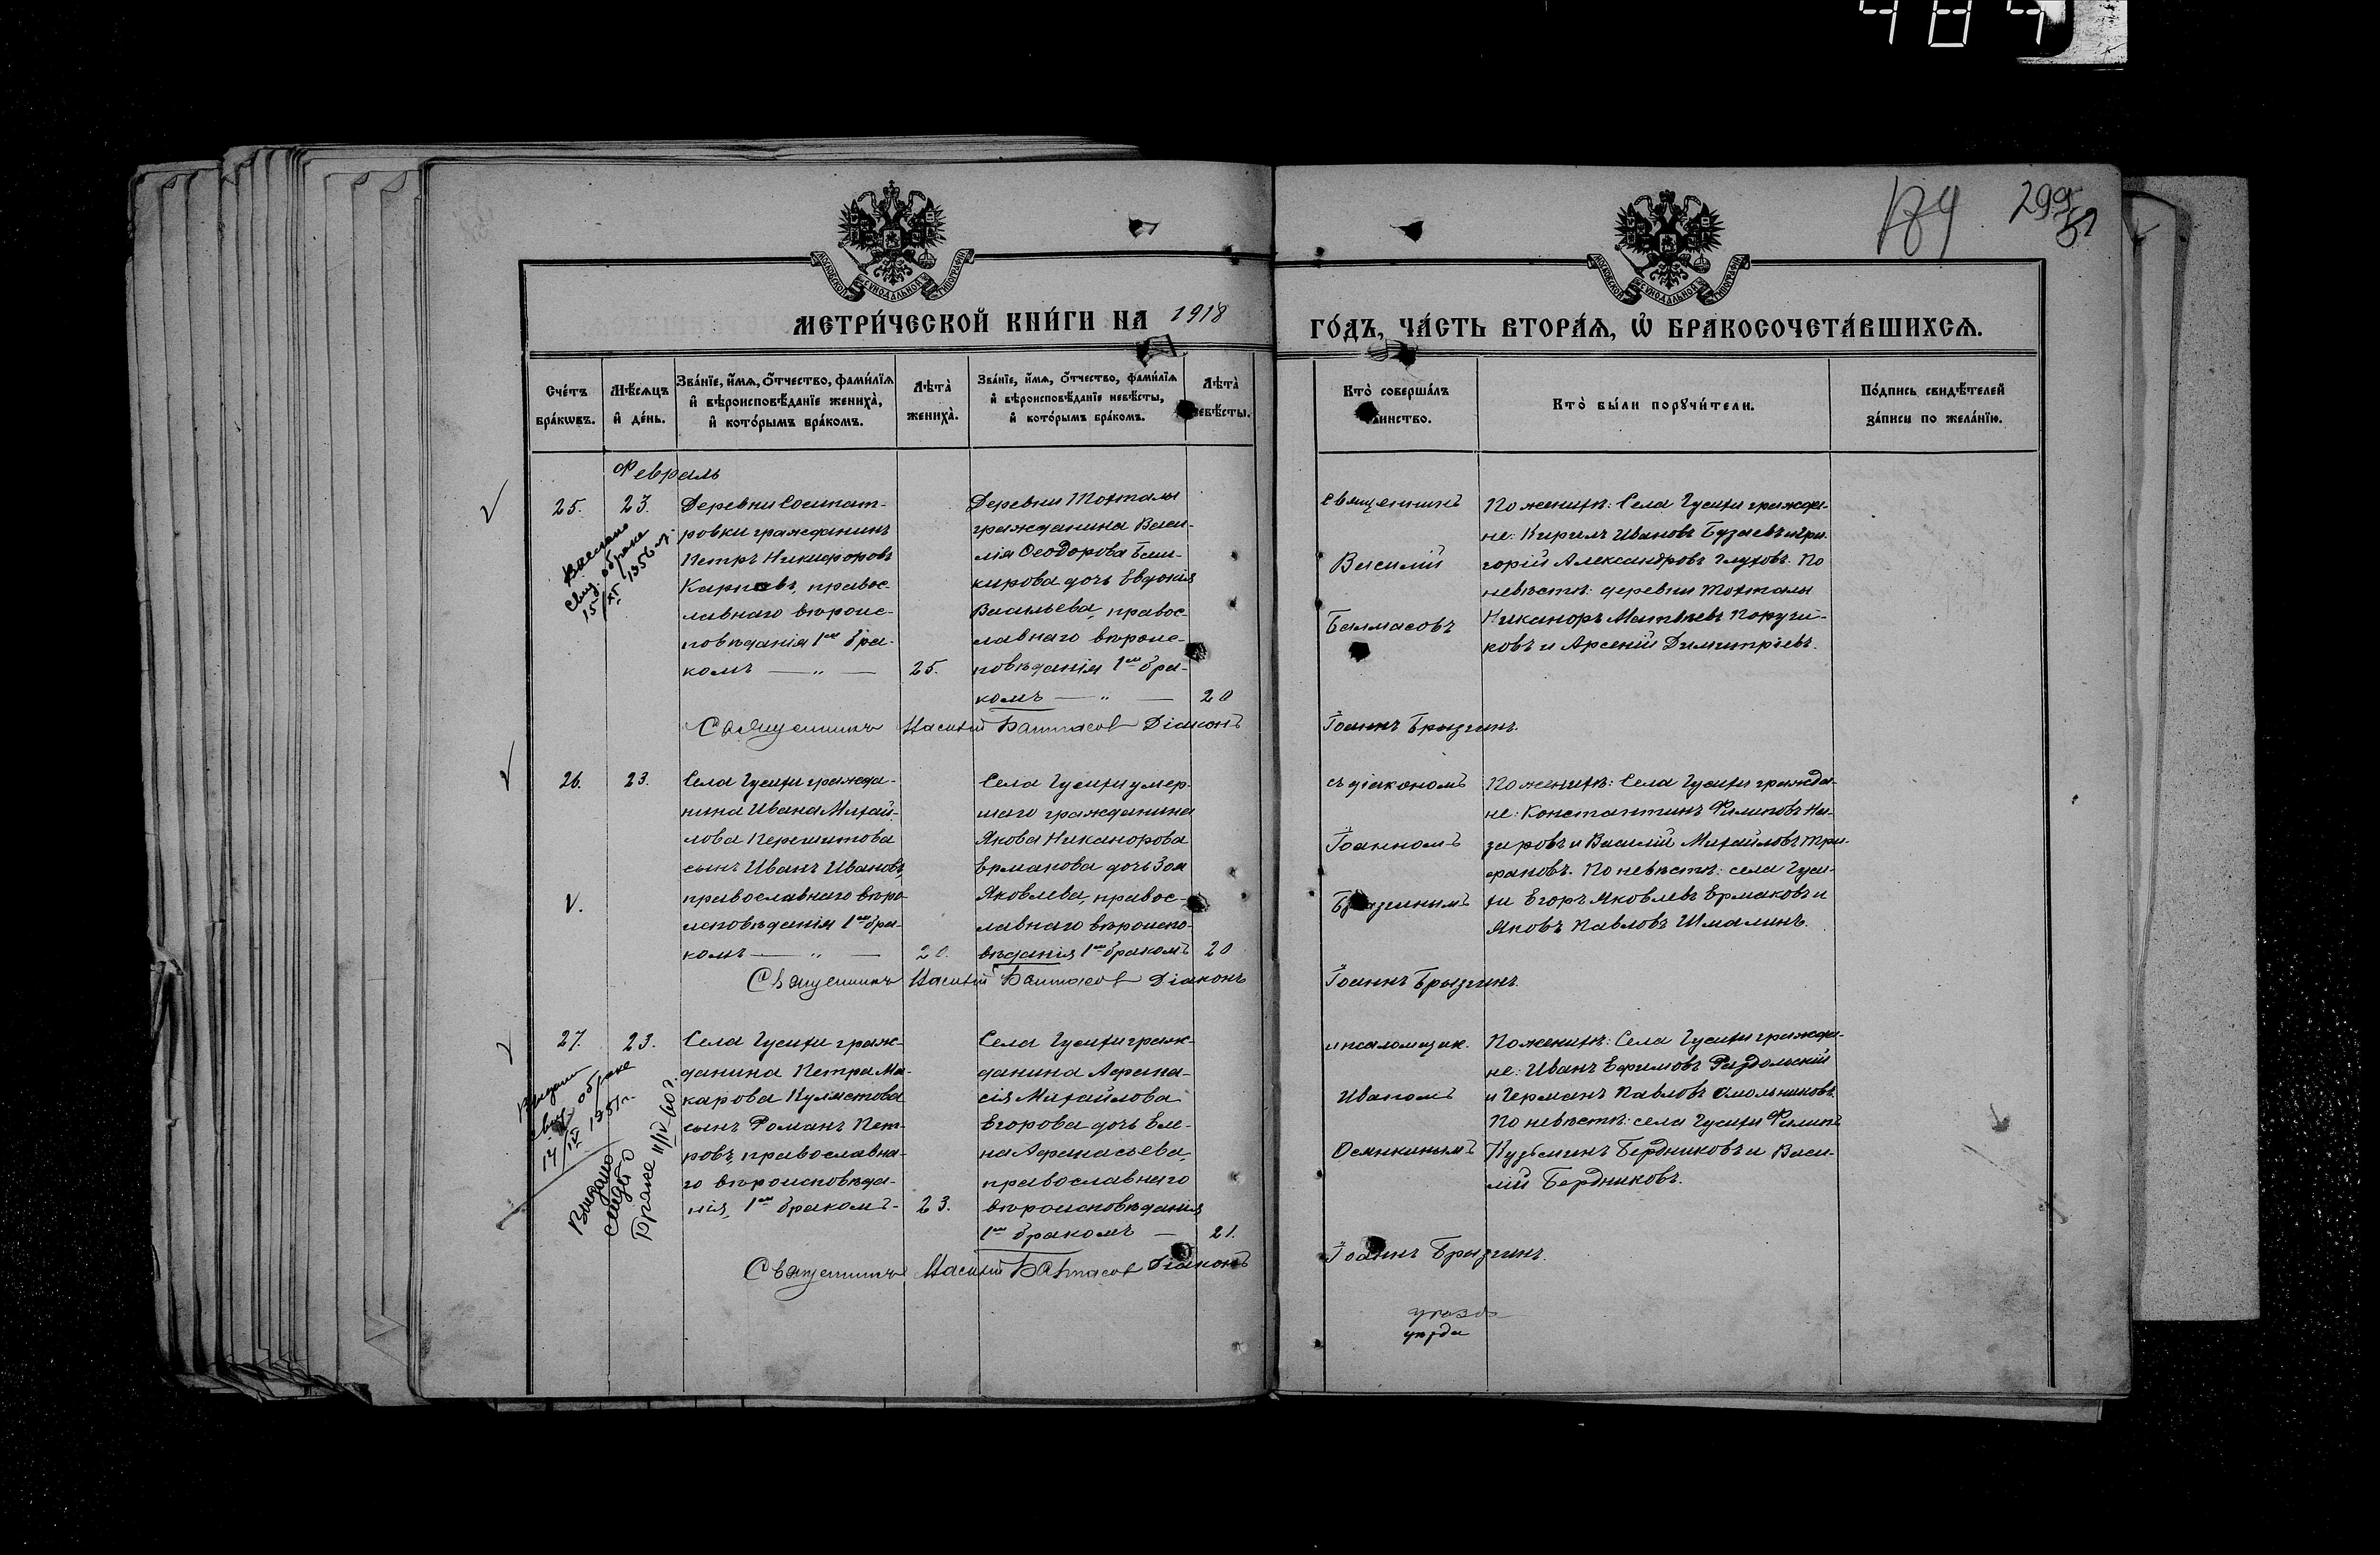 484
184 299
МЕТРИ́ЧЕСКОЙ КНИ́ГИ НА 1918 ГО́ДЪ, ЧА́СТЬ ВТОРА́Ѧ, Ѡ҆ БРАКОСОЧЕТА́ВШИХСѦ.
Сче́тъ бра́кѡвъ.
Мѣ́сѧцъ и҆ де́нь.
Зва́нїе, и҆́мѧ, ѻ҆́тчество, фами́лїѧ
и҆ вѣроисповѣ́данїе жениха̀,
и҆ кото́рымъ бра́комъ.
Лѣта̀ жениха̀.
Зва́нїе, и҆́мѧ, ѻ҆́тчество, фами́лїѧ
и҆ вѣроисповѣ́данїе невѣ́сты,
и҆ кото́рымъ бра́комъ.
Лѣта̀ невѣ́сты.
Кто̀ соверша́лъ таинство.
Кто̀ бы́ли порꙋчи́тели.
По́дпись свидѣ́телей
за́писи по жела́нїю.
Февраль
25. 23.
Деревни Сосипат-
ровки гражданинъ
Петръ Никифоровъ
Карповъ, правос-
лавнаго вѣроис-
повѣданія 1ым бра-
комъ — „ — 25.
Деревни Токталы
гражданина Васи-
лія Ѳеодорова Баш-
кирова дочь Евдокія
Васильева, правос-
лавнаго вѣроис-
повѣданія 1ым бра-
комъ — „ — 20
Священникъ
Василій
Балмасовъ
По женихѣ: Села Гусихи гражда-
не: Кирилъ Ивановъ Бузаевъ и Гри-
горій Александровъ Глуховъ. По
невѣстѣ: деревни Токталы
Никаноръ Матвѣевъ Поручи-
ковъ и Арсеній Димитріевъ.
свид. о браке
15/XI 1956 г.
Священникъ Василій Балмасовъ Діаконъ Іоаннъ Брызгинъ.
26. 23.
Села Гусихи гражда-
нина Ивана Михай-
лова
сынъ Иванъ Ивановъ,
православнаго вѣро-
исповѣданія 1ым бра-
комъ — „ — 20.
Села Гусихи умер-
шаго гражданина
Якова Никанорова
Ермакова дочь Зоя
Яковлева, правос-
лавнаго вѣроиспо-
вѣданія 1ым бракомъ 20
съ діакономъ
Іоанномъ
Брызгинымъ
По женихѣ: Села Гусихи гражда-
не: Константинъ Филиповъ На-
заровъ и Василій Михайловъ Три-
фановъ. По невѣстѣ: села Гуси-
хи Егоръ Яковлевъ Ермаковъ и
Яковъ Павловъ Шмалинъ.
Священникъ Василій Балмасовъ Діаконъ Іоаннъ Брызгинъ.
27. 23.
Села Гусихи граж-
данина Петра Ма-
карова
сынъ Романъ Пет-
ровъ, православна-
го вѣроисповѣда-
нія, 1ым бракомъ - 23.
Села Гусихи граж-
данина Афана-
сія Михайлова
Егорова дочь Еле-
на Афанасьева,
православнаго
вѣроисповѣданія
1ым бракомъ — 21.
и псаломщик.
Иваномъ
Осмикинымъ
По женихѣ: Села Гусихи гражда-
не: Иванъ Ефимовъ Раздольскій
и Германъ Павловъ Смольниковъ.
По невѣстѣ: села Гусихи Филипъ
Кузьминъ Бердниковъ и Васи-
лій Бердниковъ.
Выдано
свид. о браке
17/IV 1951 г.
Выдано
свид. о
браке 11/IV-60 г.
Священникъ Василій Балмасовъ Діаконъ Іоаннъ Брызгинъ.